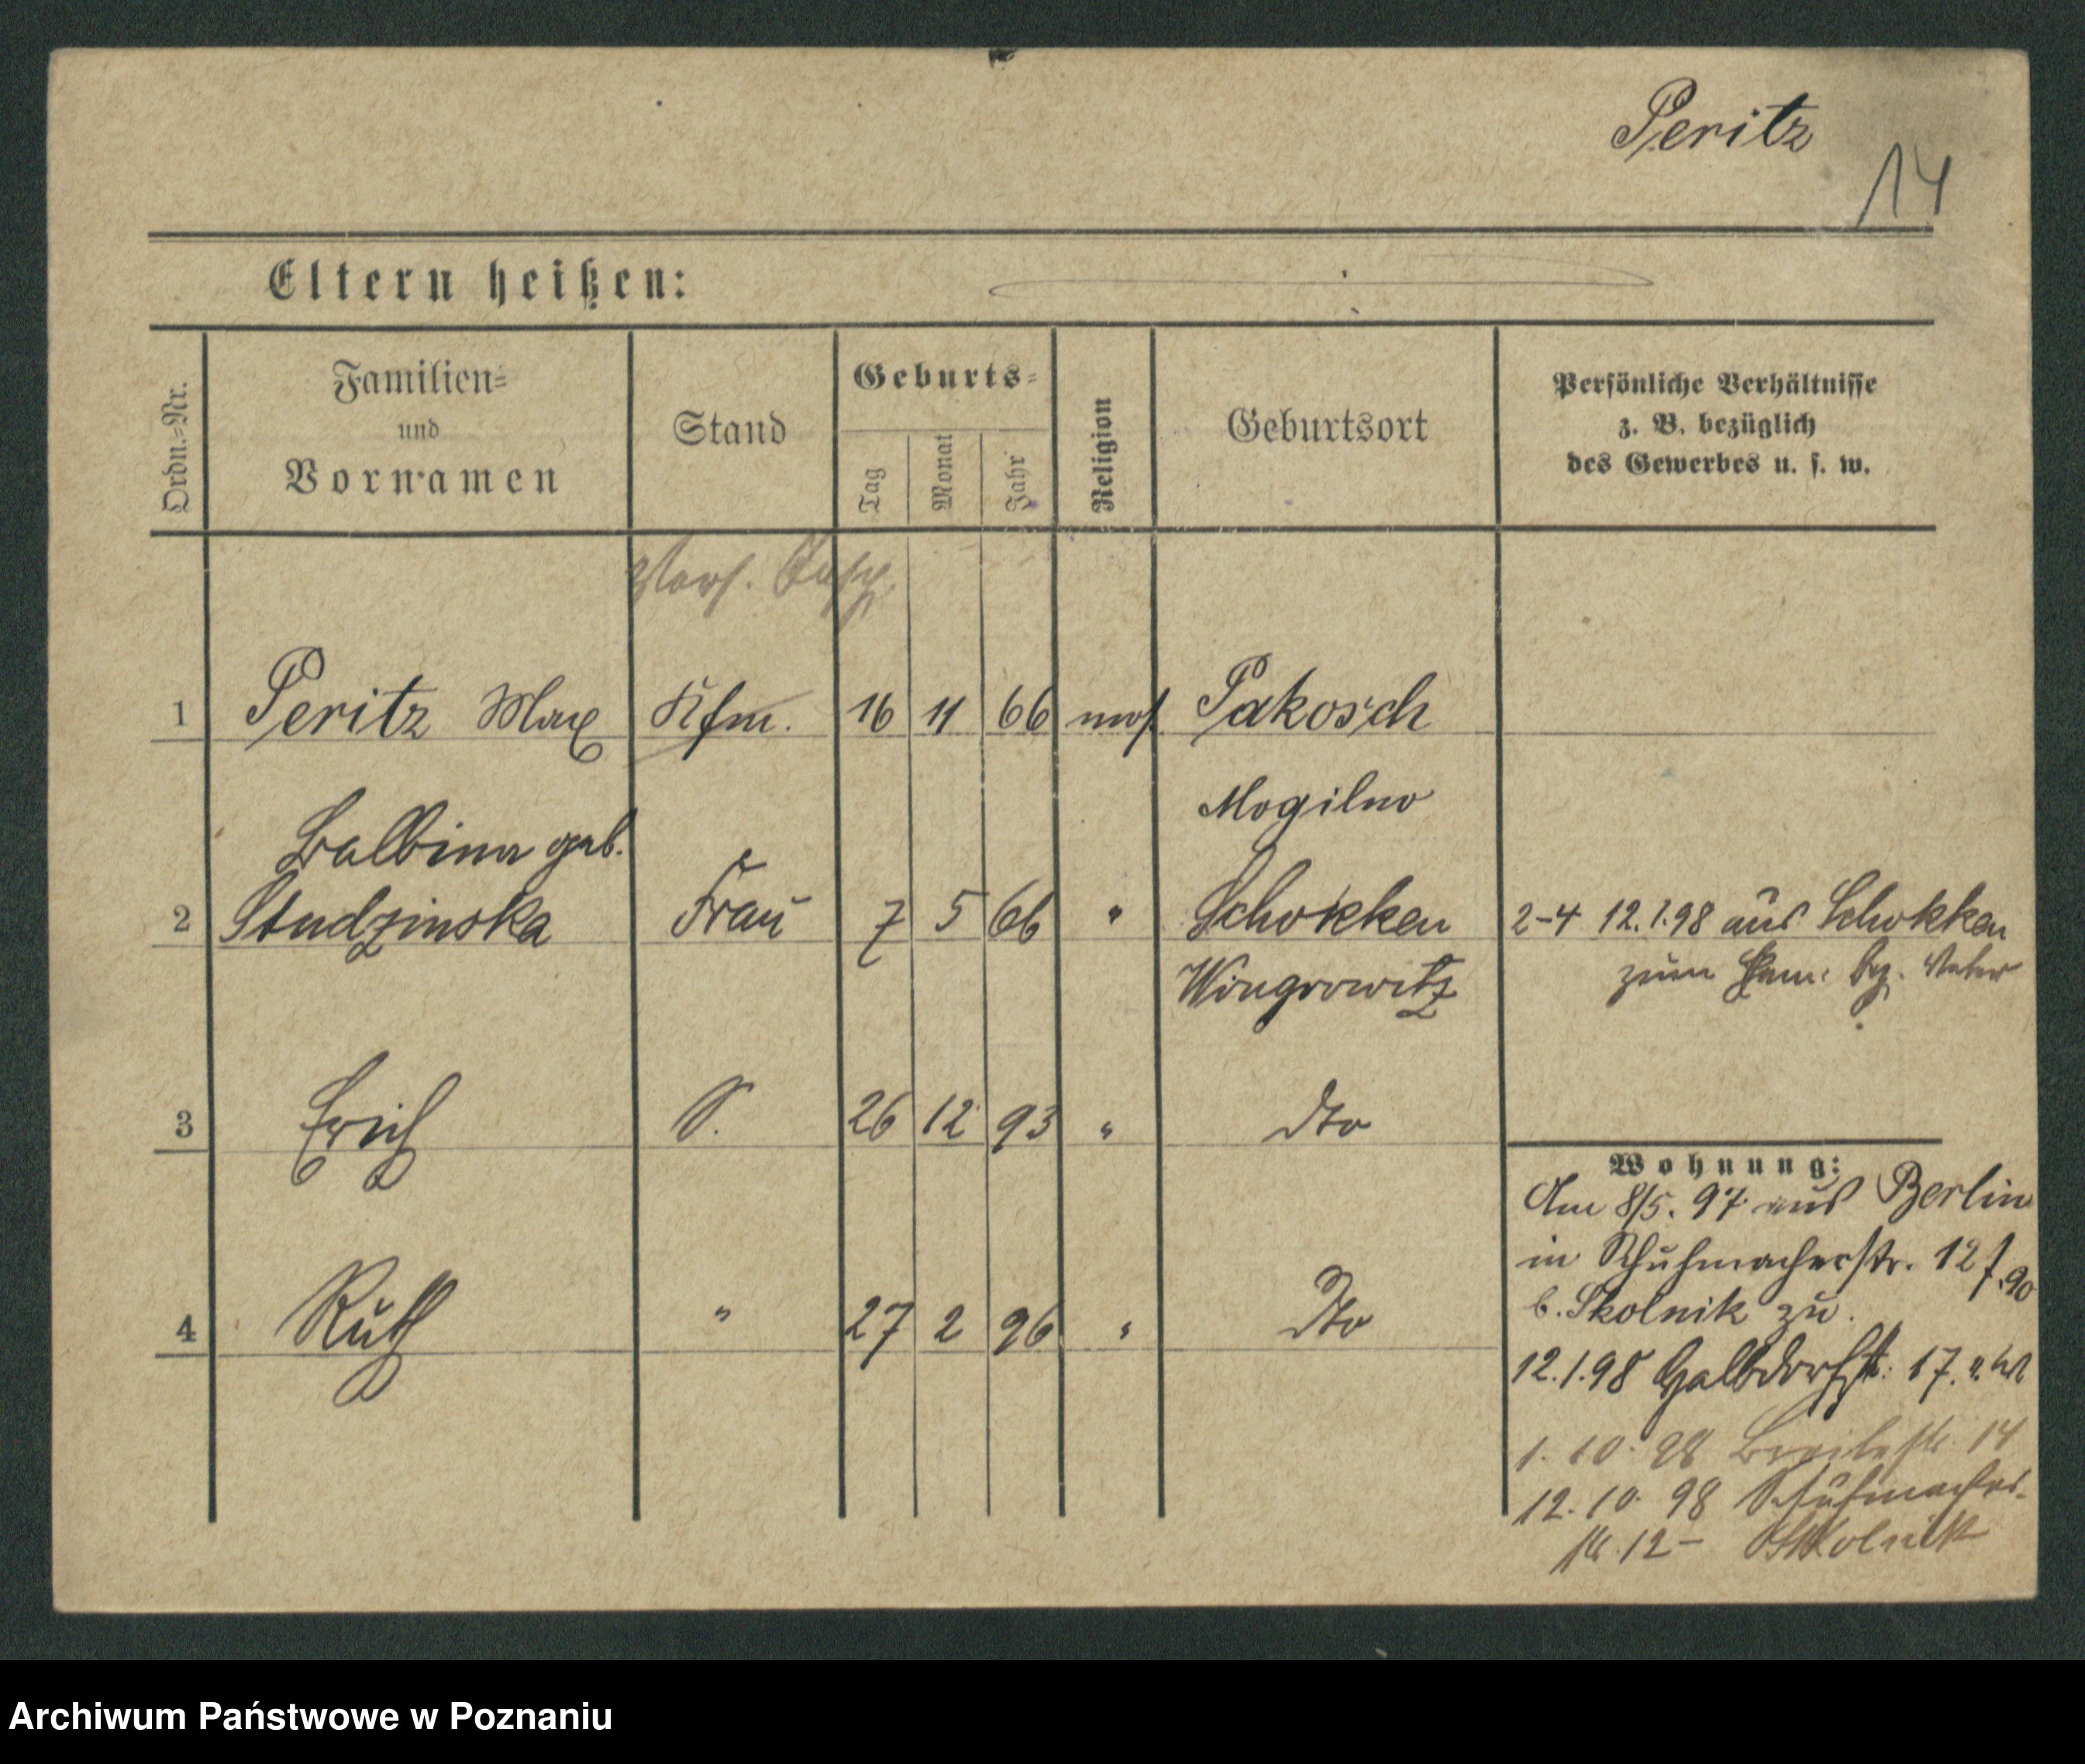 Peritz
14
Eltern heißen:
Ordn.=Nr.
Familien=
und
Vornamen
Stand
Geburts=
Tag
Monat
Jahr
Religion
Geburtsort
Persönliche Verhältnisse
z. B. bezüglich
des Gewerbes u. s. w.
1 Peritz Max Kfm. 16 11 66 mos. Pakosch
Mogilno
Balbina geb.
2 Studzinska Frau 7 5 66 " Schokken 2-4 12.1.98 aus Schokken
Wongrowitz zum
3 Erich S. 26 12 93 " dto
Wohnung:
Am 8/5. 97 aus Berlin
in Schuhmacherstr. 12
4 Ruth " 27 2 96 " dto
b. Skolnik zu.
12.1.98 Halbdorfstr. 17.
1. 10. 98 Breitestr. 14
12. 10. 98 Schuhmacher-
str. 12 - Skolnik
Archiwum Państwowe w Poznaniu